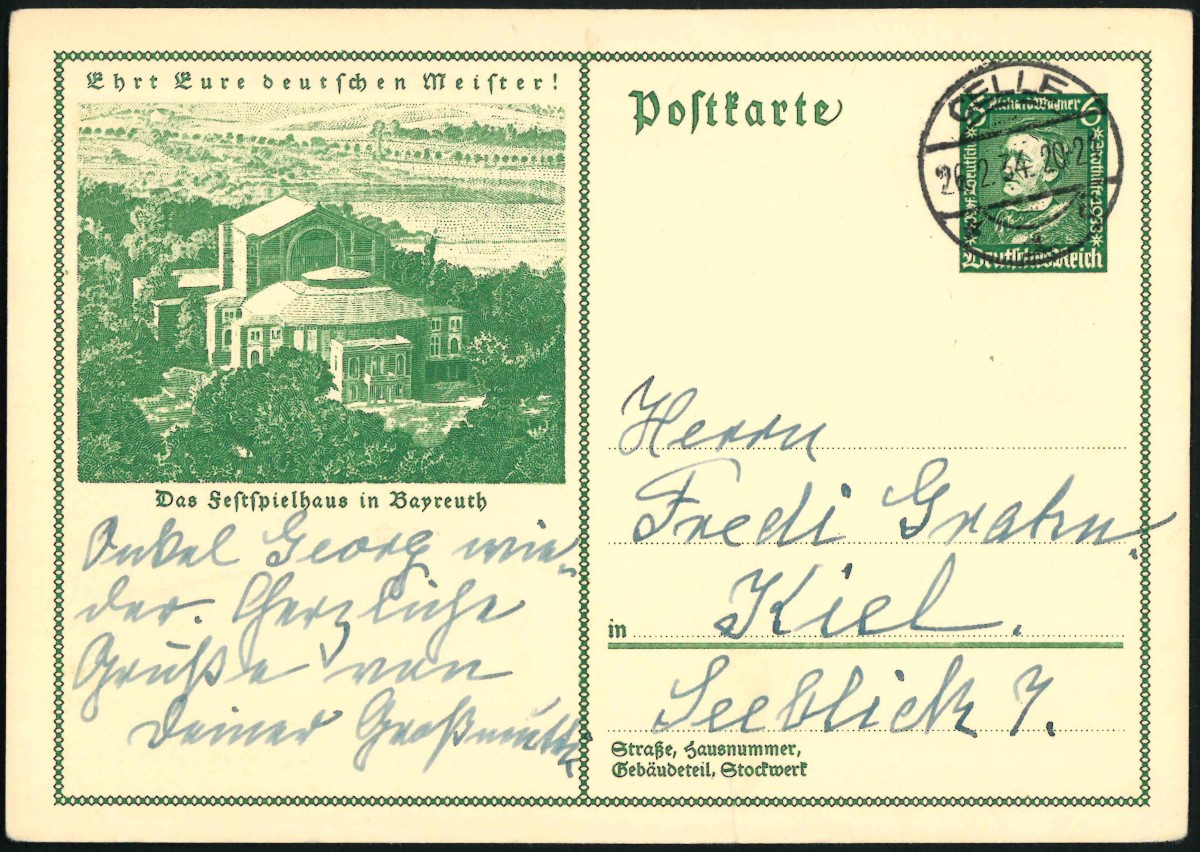 Ehrt Eure deutschen Meister!
Das Festspielhaus in Bayreuth
Onkel Georg wie-
der. Herzliche
Grüße von
Deiner Großmutter
Postkarte
CELLE
26.2.34.20-21
6 Richard Wagner 6
Deutsche
Nothilfe 1933
Deutsches Reich
Herrn
Fredi Grahn.
in Kiel.
Seeblick 7.
Straße, Hausnummer,
Gebäudeteil, Stockwerk